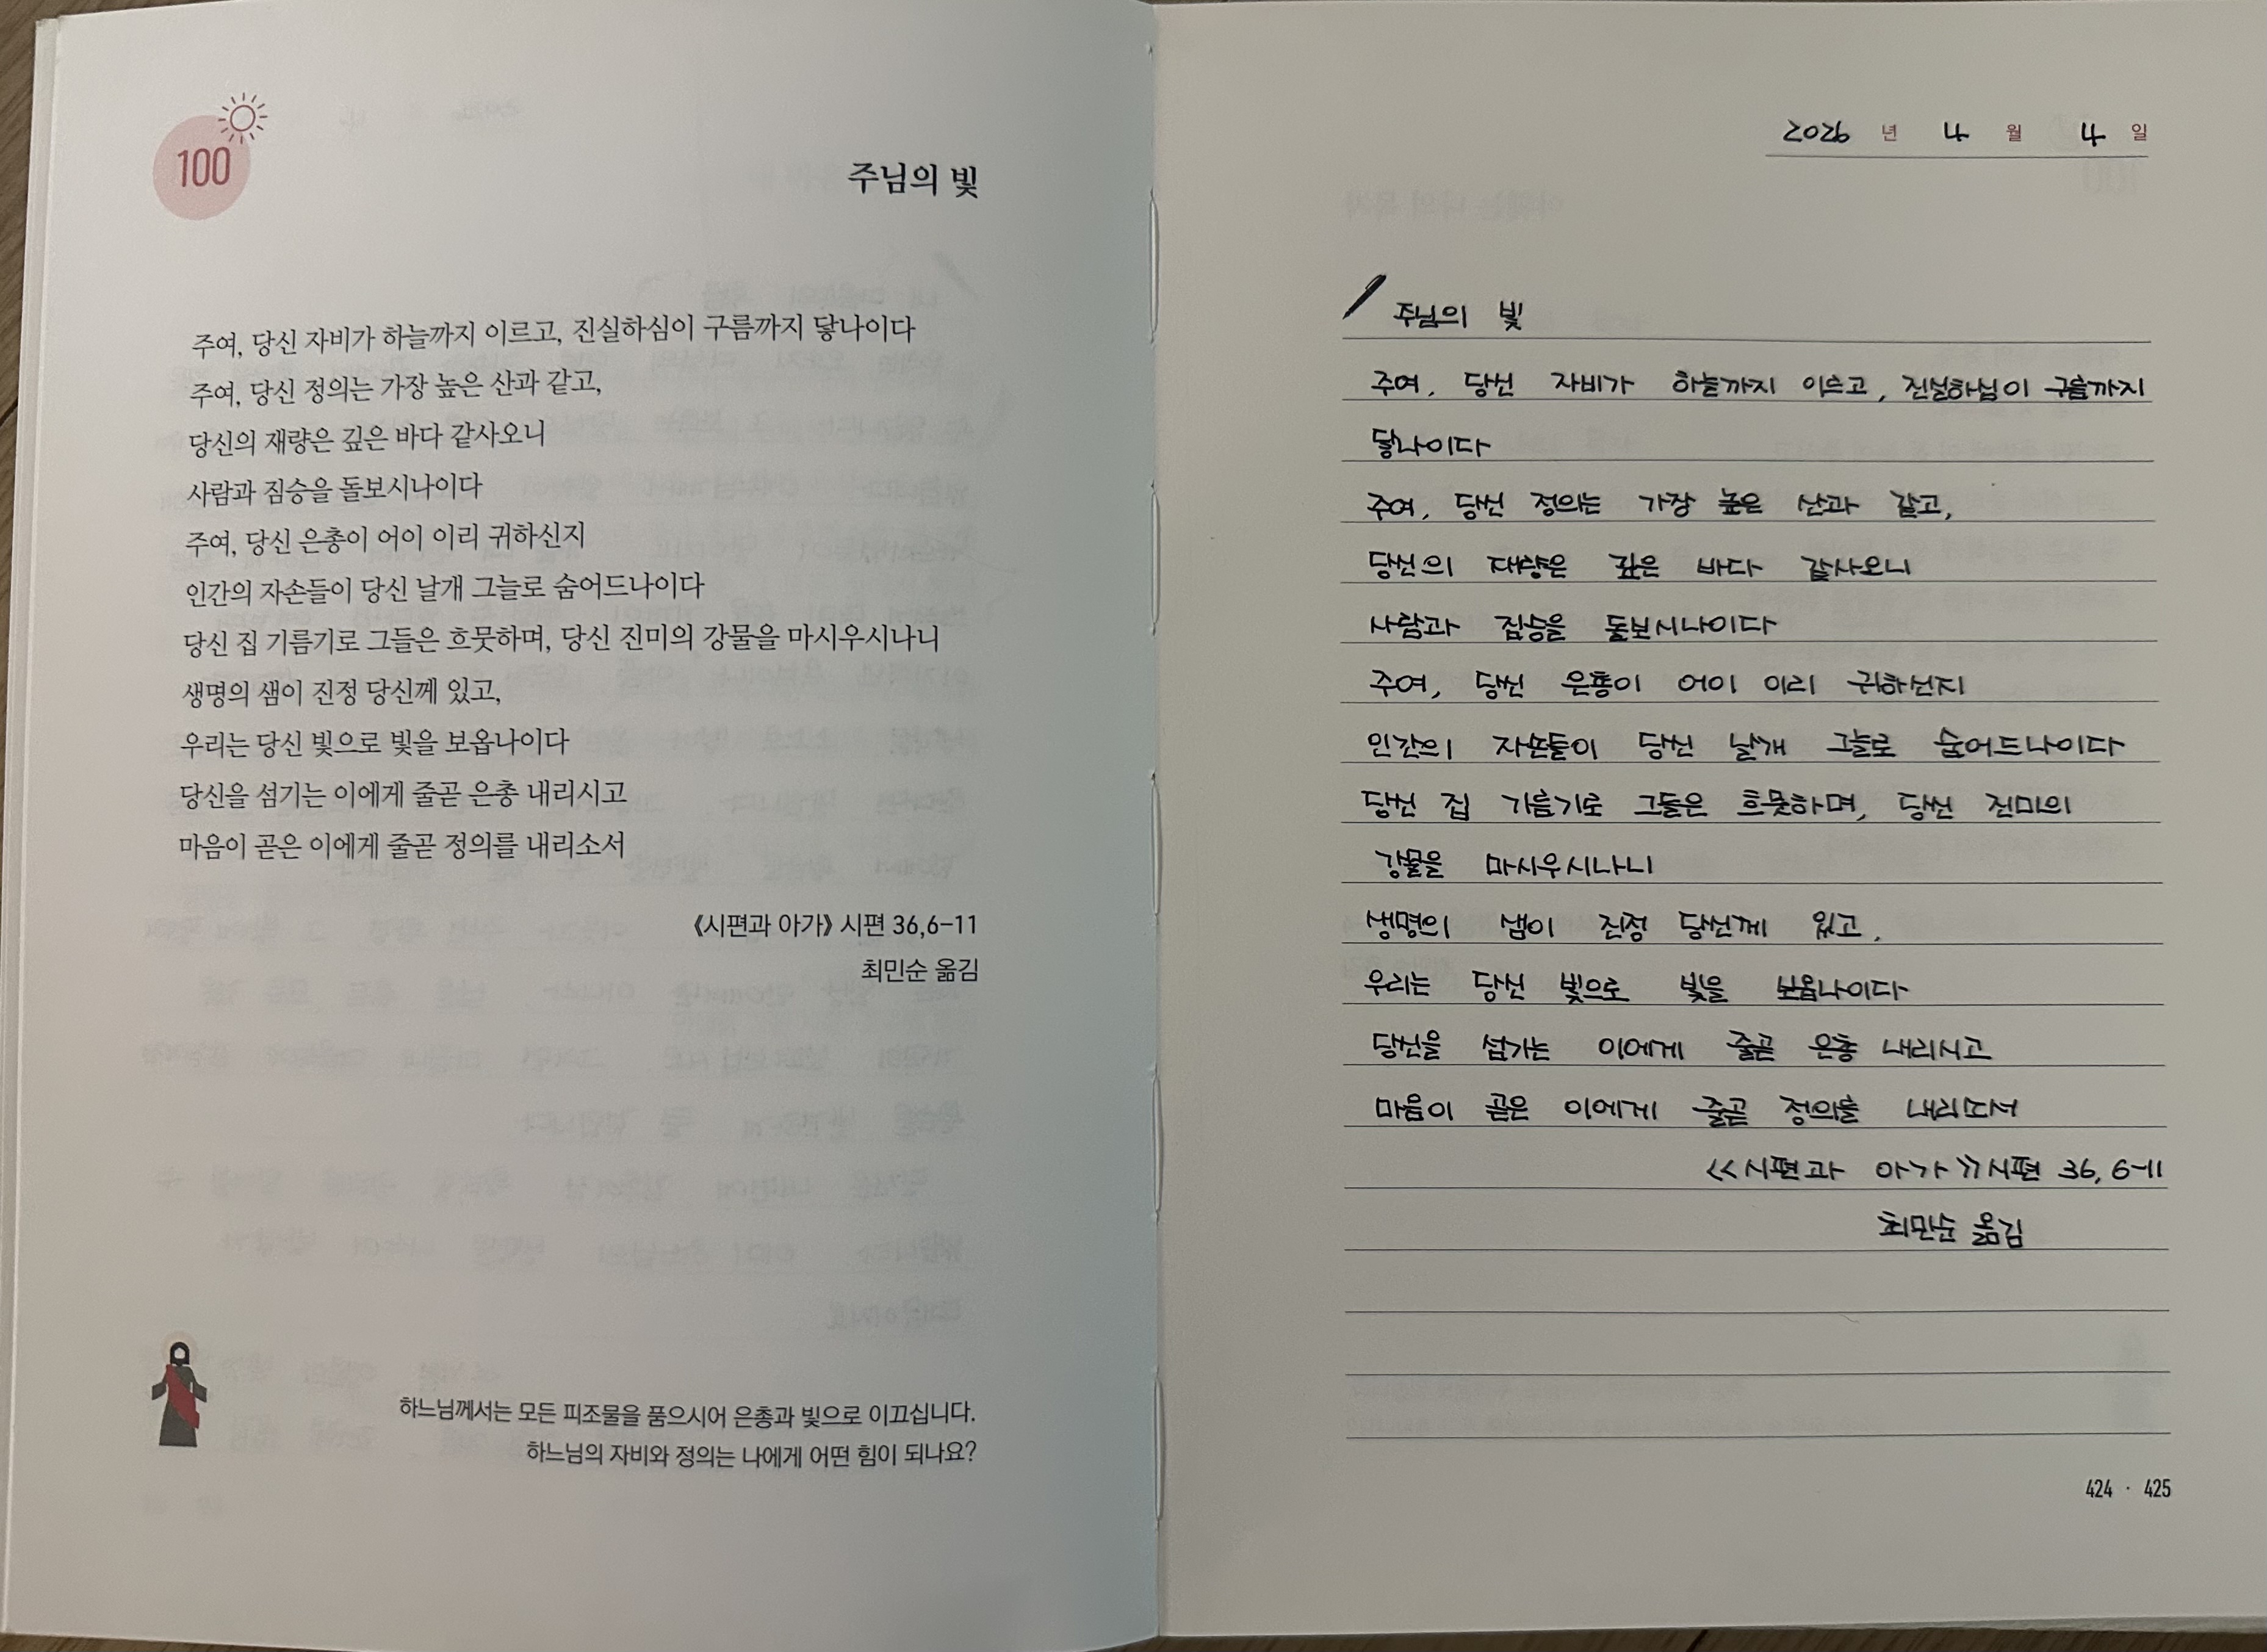 100
주님의 빛
주여, 당신 자비가 하늘까지 이르고, 진실하심이 구름까지 닿나이다
주여, 당신 정의는 가장 높은 산과 같고,
당신의 재량은 깊은 바다 같사오니
사람과 짐승을 돌보시나이다
주여, 당신 은총이 어이 이리 귀하신지
인간의 자손들이 당신 날개 그늘로 숨어드나이다
당신 집 기름기로 그들은 흐뭇하며, 당신 진미의 강물을 마시우시나니
생명의 샘이 진정 당신께 있고,
우리는 당신 빛으로 빛을 보옵나이다
당신을 섬기는 이에게 줄곧 은총 내리시고
마음이 곧은 이에게 줄곧 정의를 내리소서
《시편과 아가》 시편 36,6–11
최민순 옮김
하느님께서는 모든 피조물을 품으시어 은총과 빛으로 이끄십니다.
하느님의 자비와 정의는 나에게 어떤 힘이 되나요?
2026 년 4 월 4 일
주님의 빛
주여, 당신 자비가 하늘까지 이르고, 진실하심이 구름까지
닿나이다
주여, 당신 정의는 가장 높은 산과 같고,
당신의 재량은 깊은 바다 같사오니
사람과 짐승을 돌보시나이다
주여, 당신 은총이 어이 이리 귀하신지
인간의 자손들이 당신 날개 그늘로 숨어드나이다
당신 집 기름기로 그들은 흐뭇하며, 당신 진미의
강물을 마시우시나니
생명의 샘이 진정 당신께 있고,
우리는 당신 빛으로 빛을 보옵나이다
당신을 섬기는 이에게 줄곧 은총 내리시고
마음이 곧은 이에게 줄곧 정의를 내리소서
《시편과 아가》 시편 36, 6-11
최민순 옮김
424 · 425